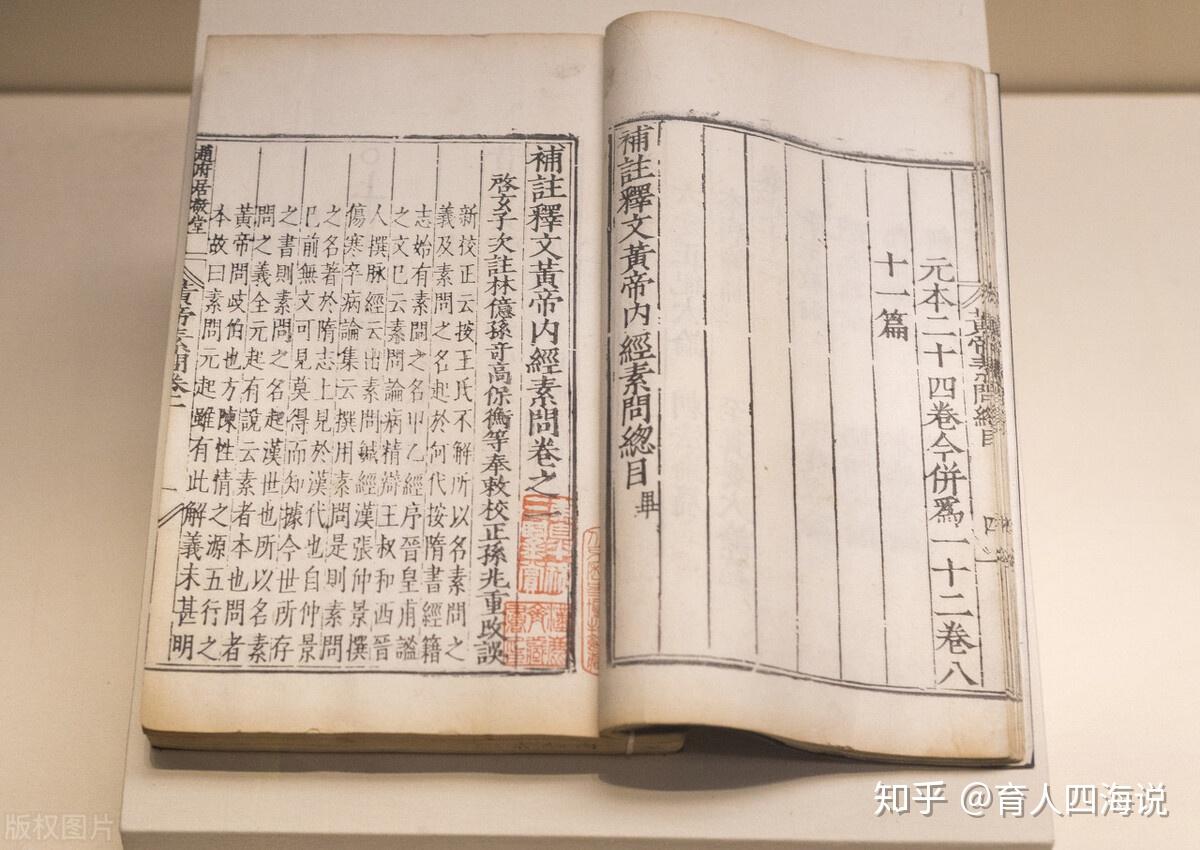 黃帝素問總目
四
元本二十四卷今併爲一十二卷八
十一篇
補註釋文黃帝内經素問總目畢
補註釋文黃帝内經素問卷之一
啓玄子次註林億孫奇高保衡等奉敕校正孫兆重改誤
新校正云按王氏不解所以名素問之
義及素問之名起於何代按隋書經籍
志始有素問之名甲乙經序晉皇甫謐
之文已云素問論病精辯王叔和西晉
人撰脉經云出素問鍼經漢張仲景撰
傷寒卒病論集云撰用素問是則素問
之名著於隋志上見於漢代也自仲景
已前無文可見莫得而知據今世所存
之書則素問之名起漢世也所以名素
問之義全元起有說云素者本也問者
黃帝問歧伯也方陳性情之源五行之
本故曰素問元起雖有此解義未甚明
趙府居敬堂
黃帝素問卷一
知乎 @育人四海说
版权图片